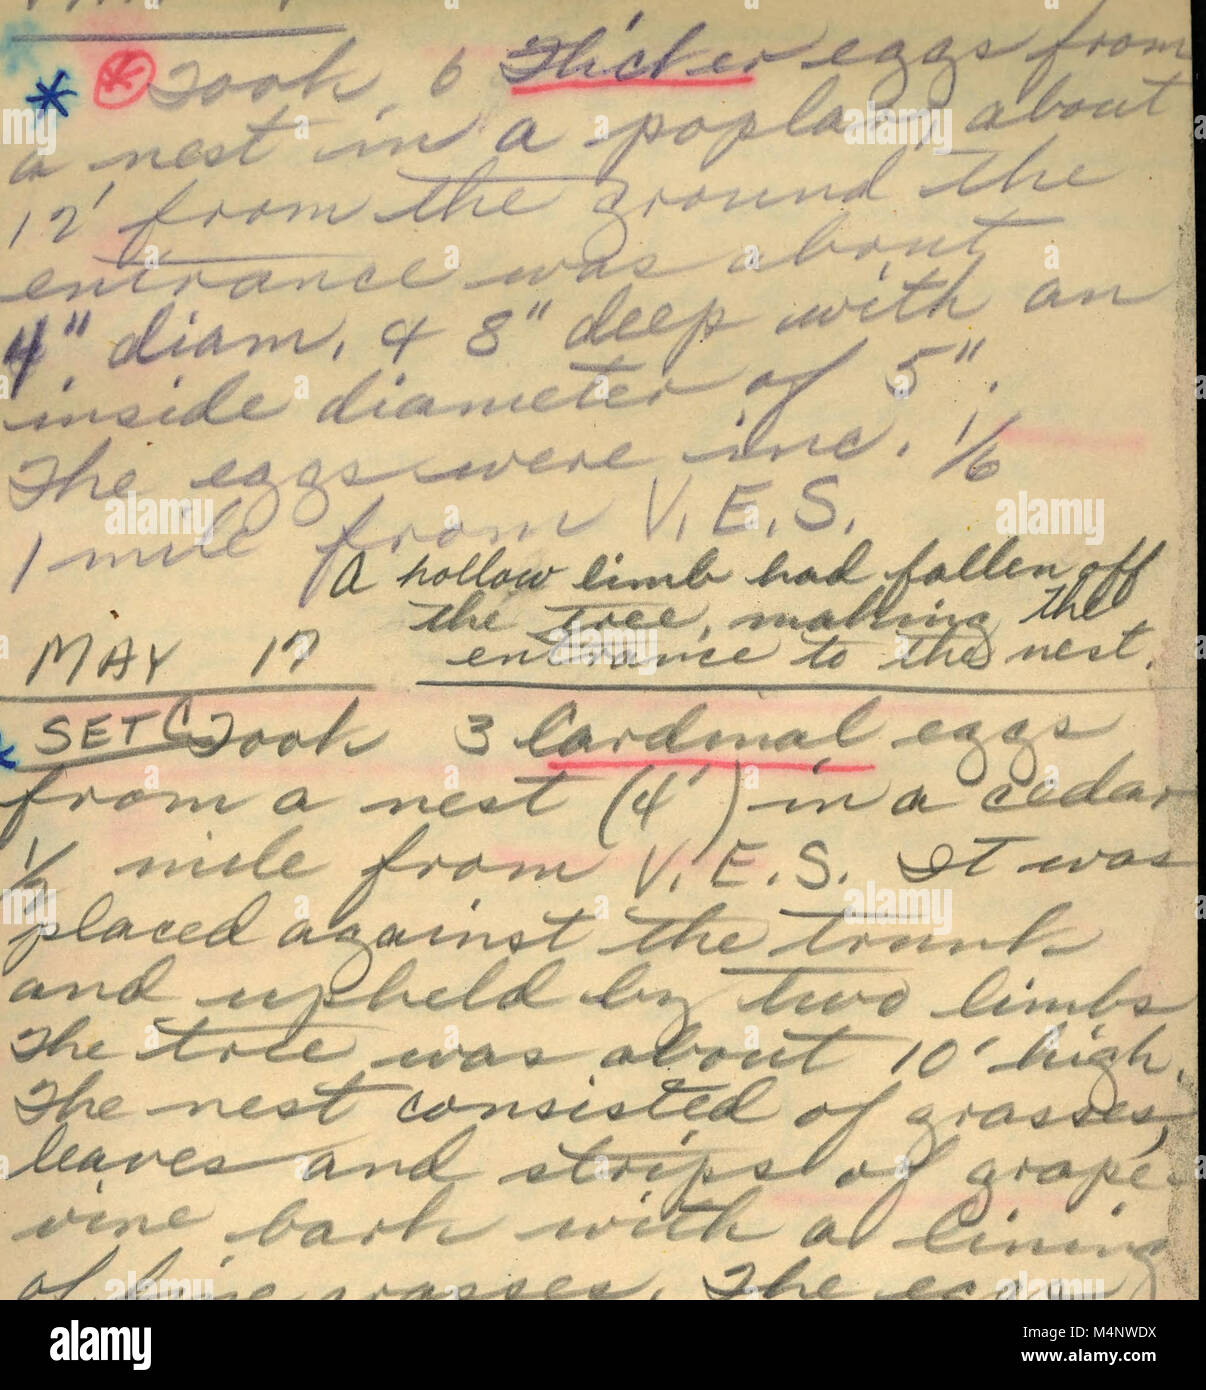 * Took 6 Flicker eggs from
a nest in a poplar, about
12' from the ground the
entrance was about
4" diam, & 8" deep with an
inside diameter of 5".
The eggs were inc. 1/6
1 mile from V.E.S.
A hollow limb had fallen off
the tree, making the
entrance to the nest.
MAY 17
* SET C Took 3 Cardinal eggs
from a nest (4') in a cedar
1/2 mile from V.E.S. It was
placed against the trunk
and upheld by two limbs
The tree was about 10' high.
The nest consisted of grasses,
leaves and strips of grape-
vine bark with a lining
of fine grasses. The eggs
alamy
Image ID: M4NWDX
www.alamy.com